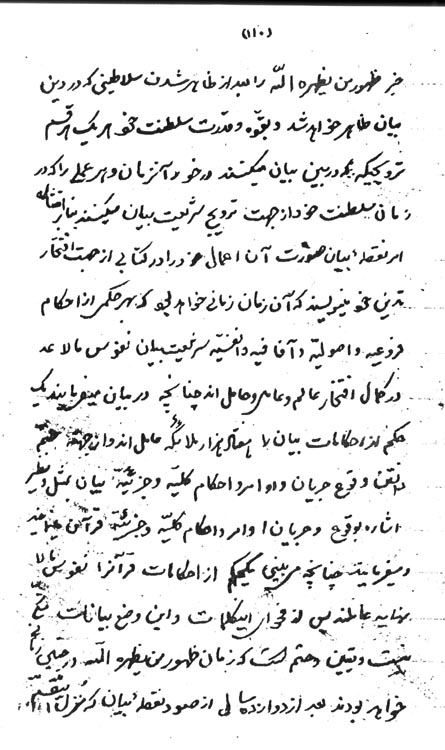 (١١٠)
خبر ظهور من یظهره اللّه را بعد از ظاهر شدن سلاطینی که در دین
بیان ظاهر خواهد شد و بقوّه و قدرت سلطنت خود هر یک هر قسم
ترویجیکه در دین بیان میکنند در خود آنزمان و هر عملی را که در
زمان سلطنت خود از جهت ترویج شریعت بیان میکنند بنابر اقتضاء
امر نقطهٔ بیان صورت آن اعمال خود را در کتابی از جهت افتخار
تدین خود مینویسند که آن زمان زمانی خواهد بود که بهر حکمی از احکام
فروعیه و اصولیّه و آفاقیه و انفسیّه شریعت بیان نفوس مالا عد
در کمال افتخار عالم و عامل و حامل اند چنانچه در بیان میفرمایند یک
حکم از احکامات بیان را هزار ملائکه حامل اند و از جهة
وقوع جریان و اوامر و احکام کلیّه و جزئیّه بیان بمثل و نظیر
اشاره بوقوع و جریان اوامر و احکام کلیّه و جزئیّه قرآن
و میفرماید چنانچه می بینی هر حکم از احکامات قرآنرا نفوس مالا
نهایه عاملند پس از فحوای اینکلمات و این وضع بیانات
است و یقین و حتم است که زمان ظهور من یظهره اللّه در
خواهد بود نه بعد از دوازده سالی از صعود نقطهٔ بیان که منزل